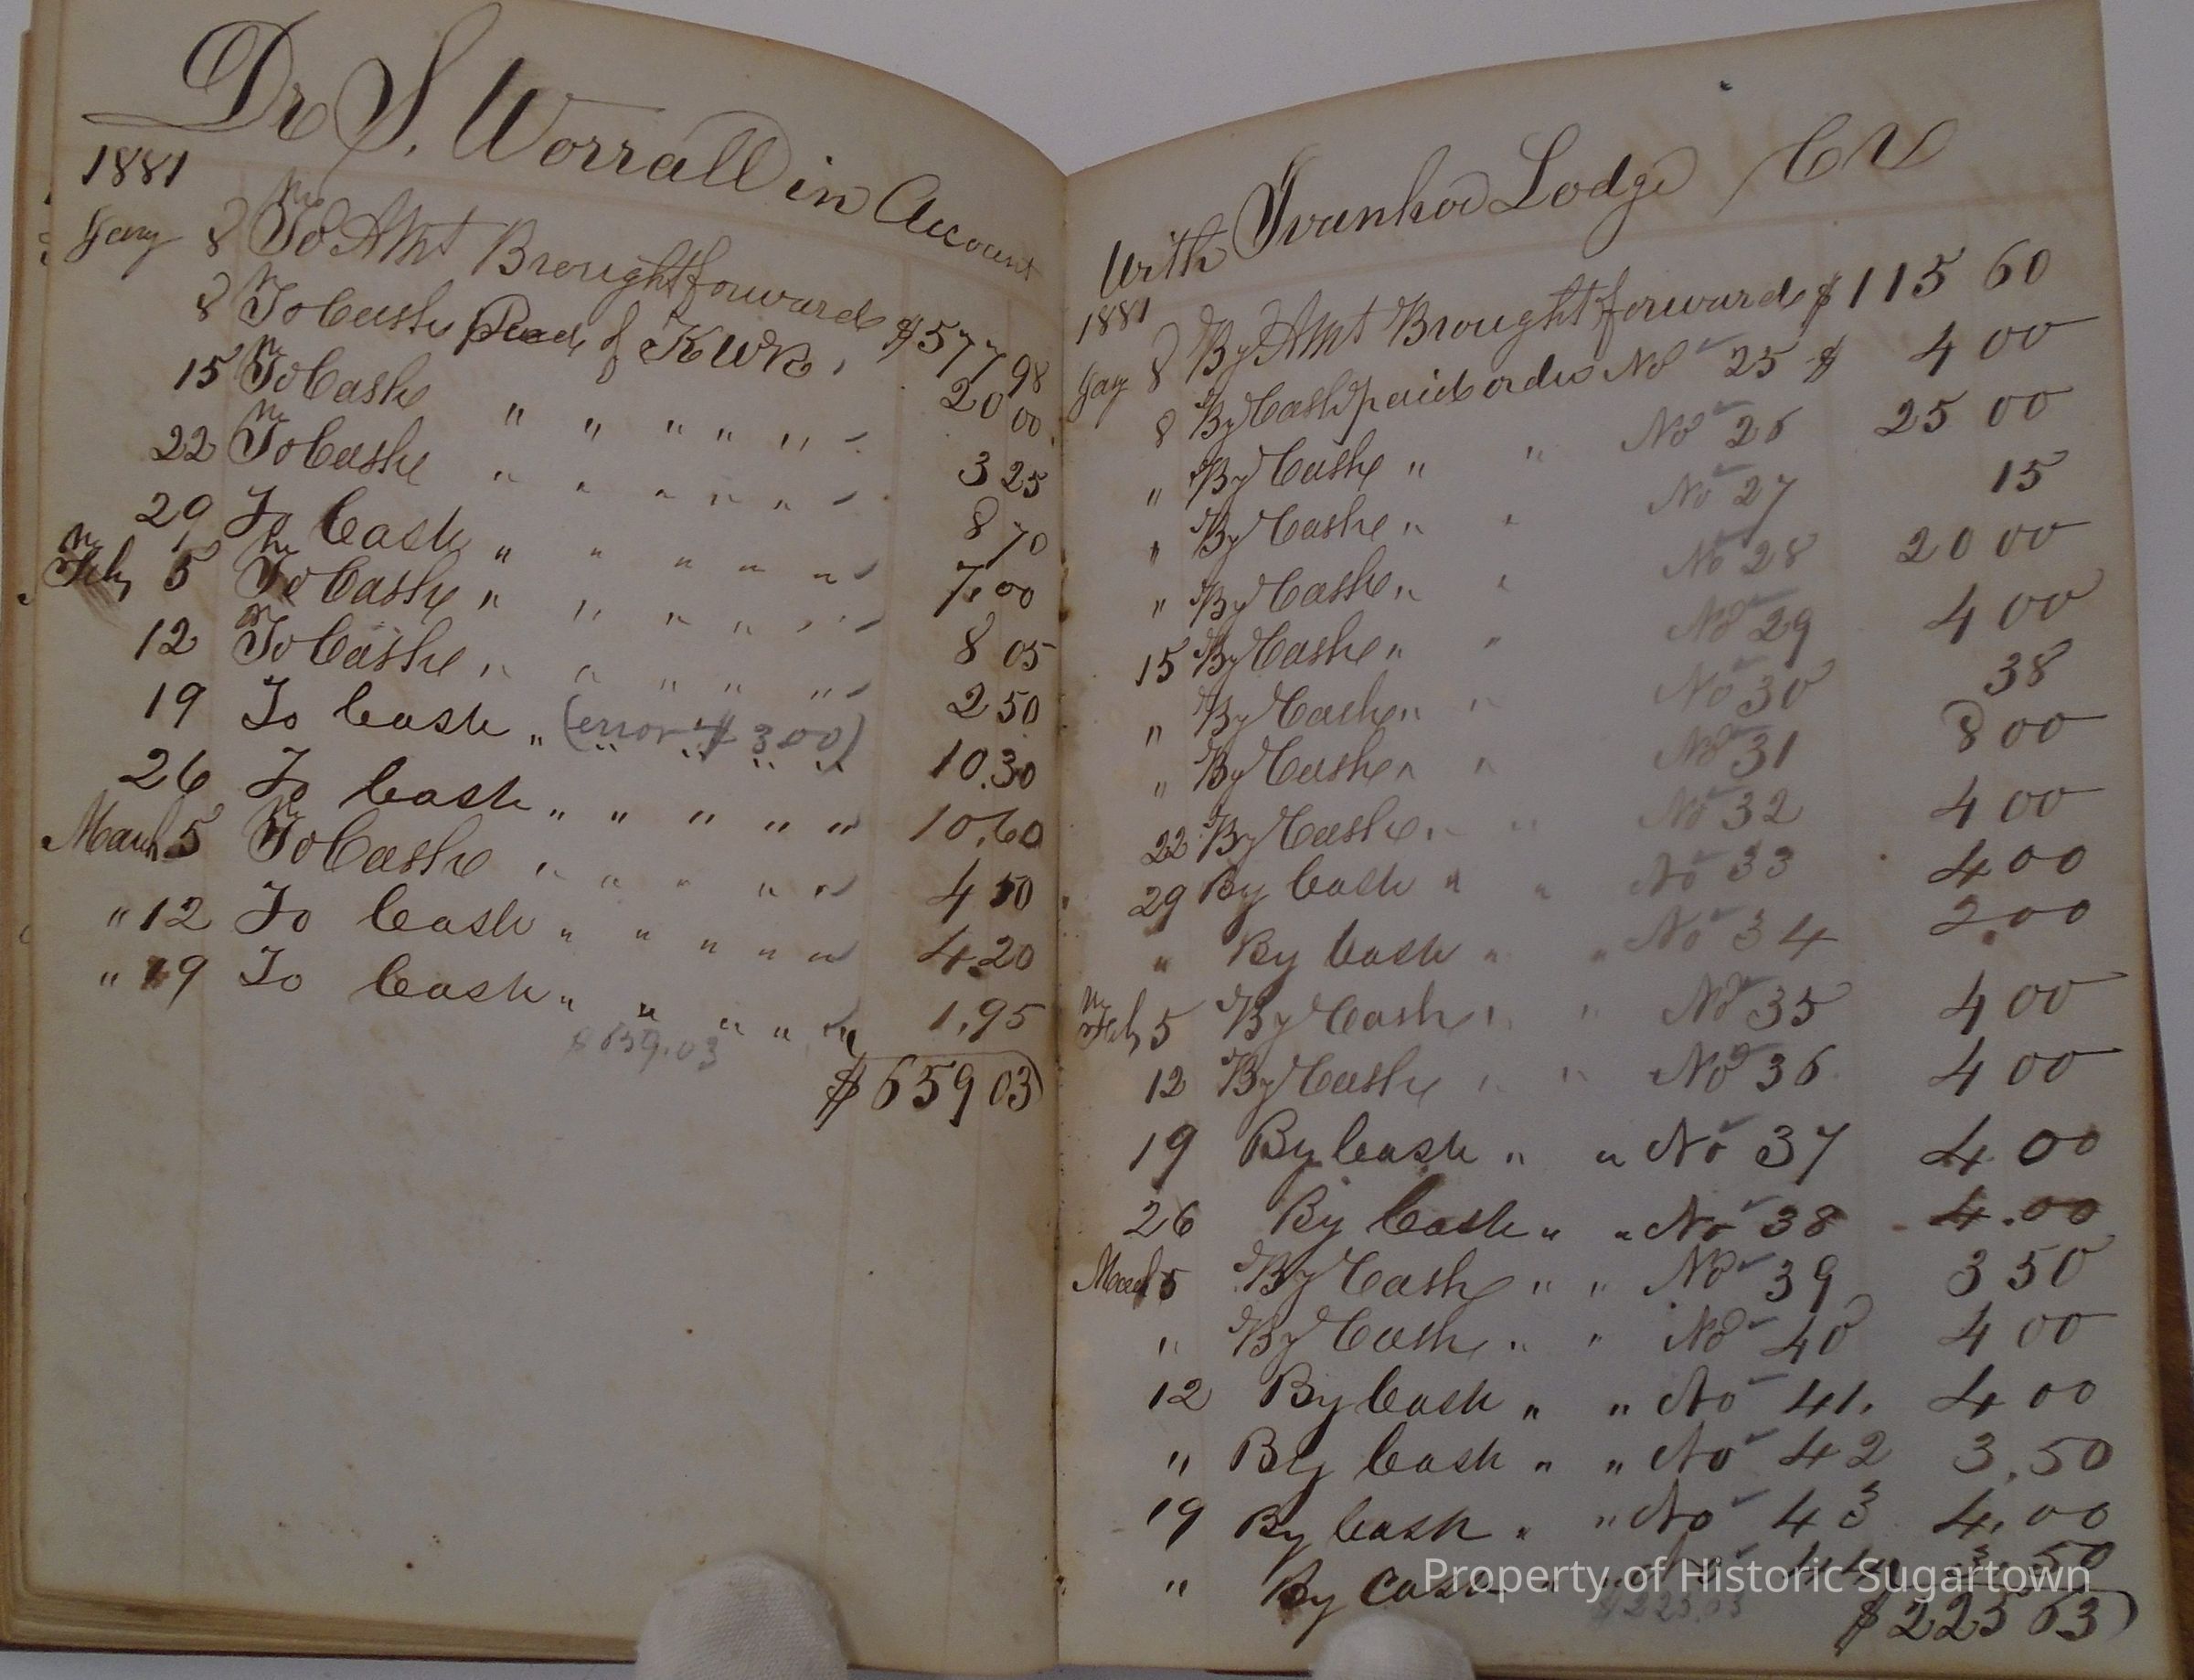 Dr S. Worrall in Account
1881
Jany 8 To Amt Brought forward $577 98
8 To Cash Recd of K W R. 20 00
15 To Cash " " " " " 3 25
22 To Cash " " " " " 8 70
29 To Cash " " " " " 7.00
Feby 5 To Cash " " " " " 8 05
12 To Cash " " " " " 2 50
19 To Cash " (error $ 3 00) " " " " 10.30
26 To Cash " " " " " 10.60
March 5 To Cash " " " " " 4 50
" 12 To Cash " " " " " 4.20
" 19 To Cash " " " " " 1.95
$659.03
$659 03
With Ivanhoe Lodge
1881
Jany 8 By Amt Brought forward $115 60
8 By Cash paid order No 25 $ 4 00
" By Cash " " No 26 25 00
" By Cash " " No 27 15
" By Cash " " No 28 20 00
15 By Cash " " No 29 4 00
" By Cash " " No 30 38
" By Cash " " No 31 8 00
22 By Cash " " No 32 4 00
29 By Cash " " No 33 4 00
" By Cash " " No 34 2.00
Feby 5 By Cash " " No 35 4 00
12 By Cash " " No 36 4 00
19 By Cash " " No 37 4.00
26 By Cash " " No 38 4.00
March 5 By Cash " " No 39 3 50
" By Cash " " No 40 4 00
12 By Cash " " No 41. 4 00
" By Cash " " No 42 3.50
19 By Cash " " No 43 4.00
" By Cash " " No 44 3.50
$225.63
$225 63
Property of Historic Sugartown